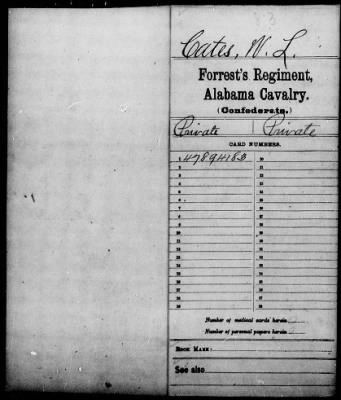 Cates, W. L.
Forrest's Regiment,
Alabama Cavalry.
(Confederate.)
Private Private
CARD NUMBERS.
1 47894183
Number of medical cards herein
Number of personal papers herein
BOOK MARK:
See also